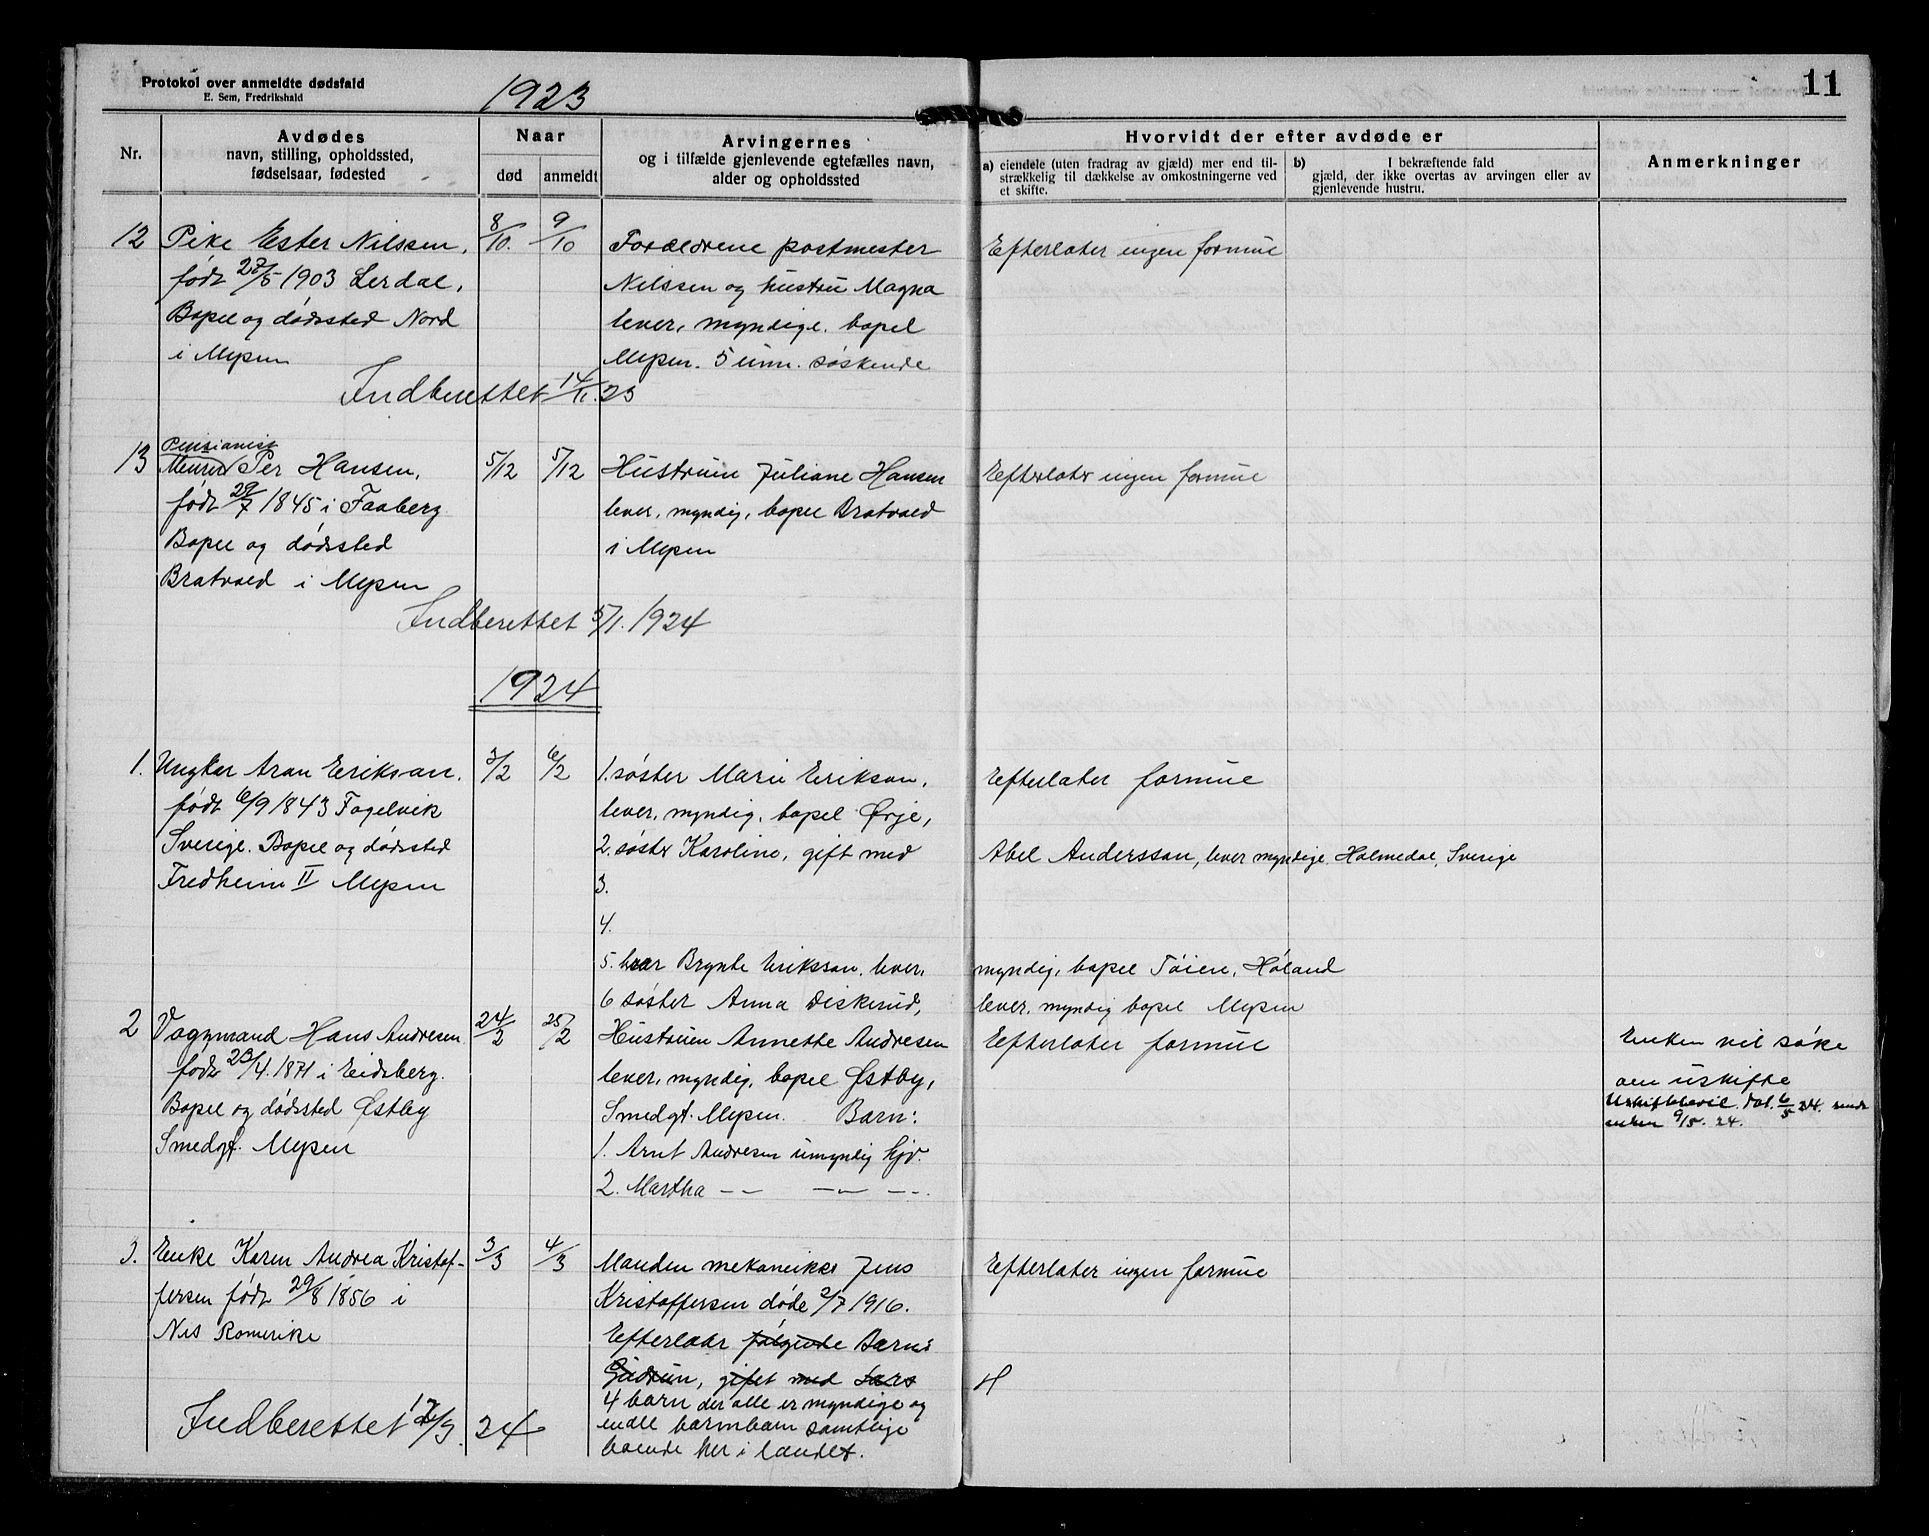 Protokol over anmeldte dødsfald
E. Sem, Fredrikshald
1923
11
Nr.
Avdødes
navn, stilling, opholdssted,
fødselsaar, fødested
Naar
død
anmeldt
Arvingernes
og i tilfælde gjenlevende egtefælles navn,
alder og opholdssted
Hvorvidt der efter avdøde er
a) eiendele (uten fradrag av gjæld) mer end til-
strækkelig til dækkelse av omkostningerne ved
et skifte.
b) I bekræftende fald
gjæld, der ikke overtas av arvingen eller av
gjenlevende hustru.
Anmerkninger
12
Pike Ester Nilssen,
født 27/5 1903 Lerdal,
Bopel og dødssted Nord
i Mysen
8/10.
9/10
Forældrene postmester
Nilssen og hustru Magna
lever, myndige. bopel
Mysen. 5 umn. søskende
Efterlater ingen formue
Indberettet 14/11. 23
13
Pensionist
Murer Per Hansen,
født 29/7 1845 i Faaberg
Bopel og dødssted
Bratvold i Mysen
5/12
5/12
Hustruen Juliane Hansen
lever, myndig, bopel Bratvold
i Mysen
Efterlater ingen formue
Indberettet 5/1. 1924
1924
1.
Ungkar Aron Erikson.
født 6/9 1843 Fogelvik
Sverige. Bopel og dødssted
Fredheim II Mysen
3/2
6/2
1. søster Marie Erikson,
lever, myndig, bopel Ørje,
2. søster Karoline, gift med
Abel Andersson, lever myndige. Holmedal, Sverige
3.
4.
5. bror Brynte Eriksson, lever,
myndig, bopel Töien, Høland
6 søster Anna Diskerud,
lever, myndig bopel Mysen
Efterlater formue
2
Vognmand Hans Andresen
født 23/4. 1871 i Eidsberg.
Bopel og dødssted Østby
Smedgt. Mysen
24/2
25/2
Hustruen Annette Andresen
lever, myndig, bopel Østby,
Smedgt. Mysen. Barn:
1. Arnt Andresen umyndig hjv.
2. Martha -- -- --.
Efterlater formue
Enken vil søke
om uskifte
Uskiftebevil. dat. 6/5 24. sendt
enken 9/5. 24.
3.
Enke Karen Andrea Kristof-
fersen født 29/8 1856 i
Nes Romerike
3/3
4/3
Manden mekaniker Jens
Kristoffersen døde 2/7 1916.
Efterlatr følgende Barn:
Gudrun, gift med Lars
4 barn der alle er myndige og
endl barnbarn samtlige
boende her i landet.
Efterlater ingen formue
H
Indberettet 17/3. 24